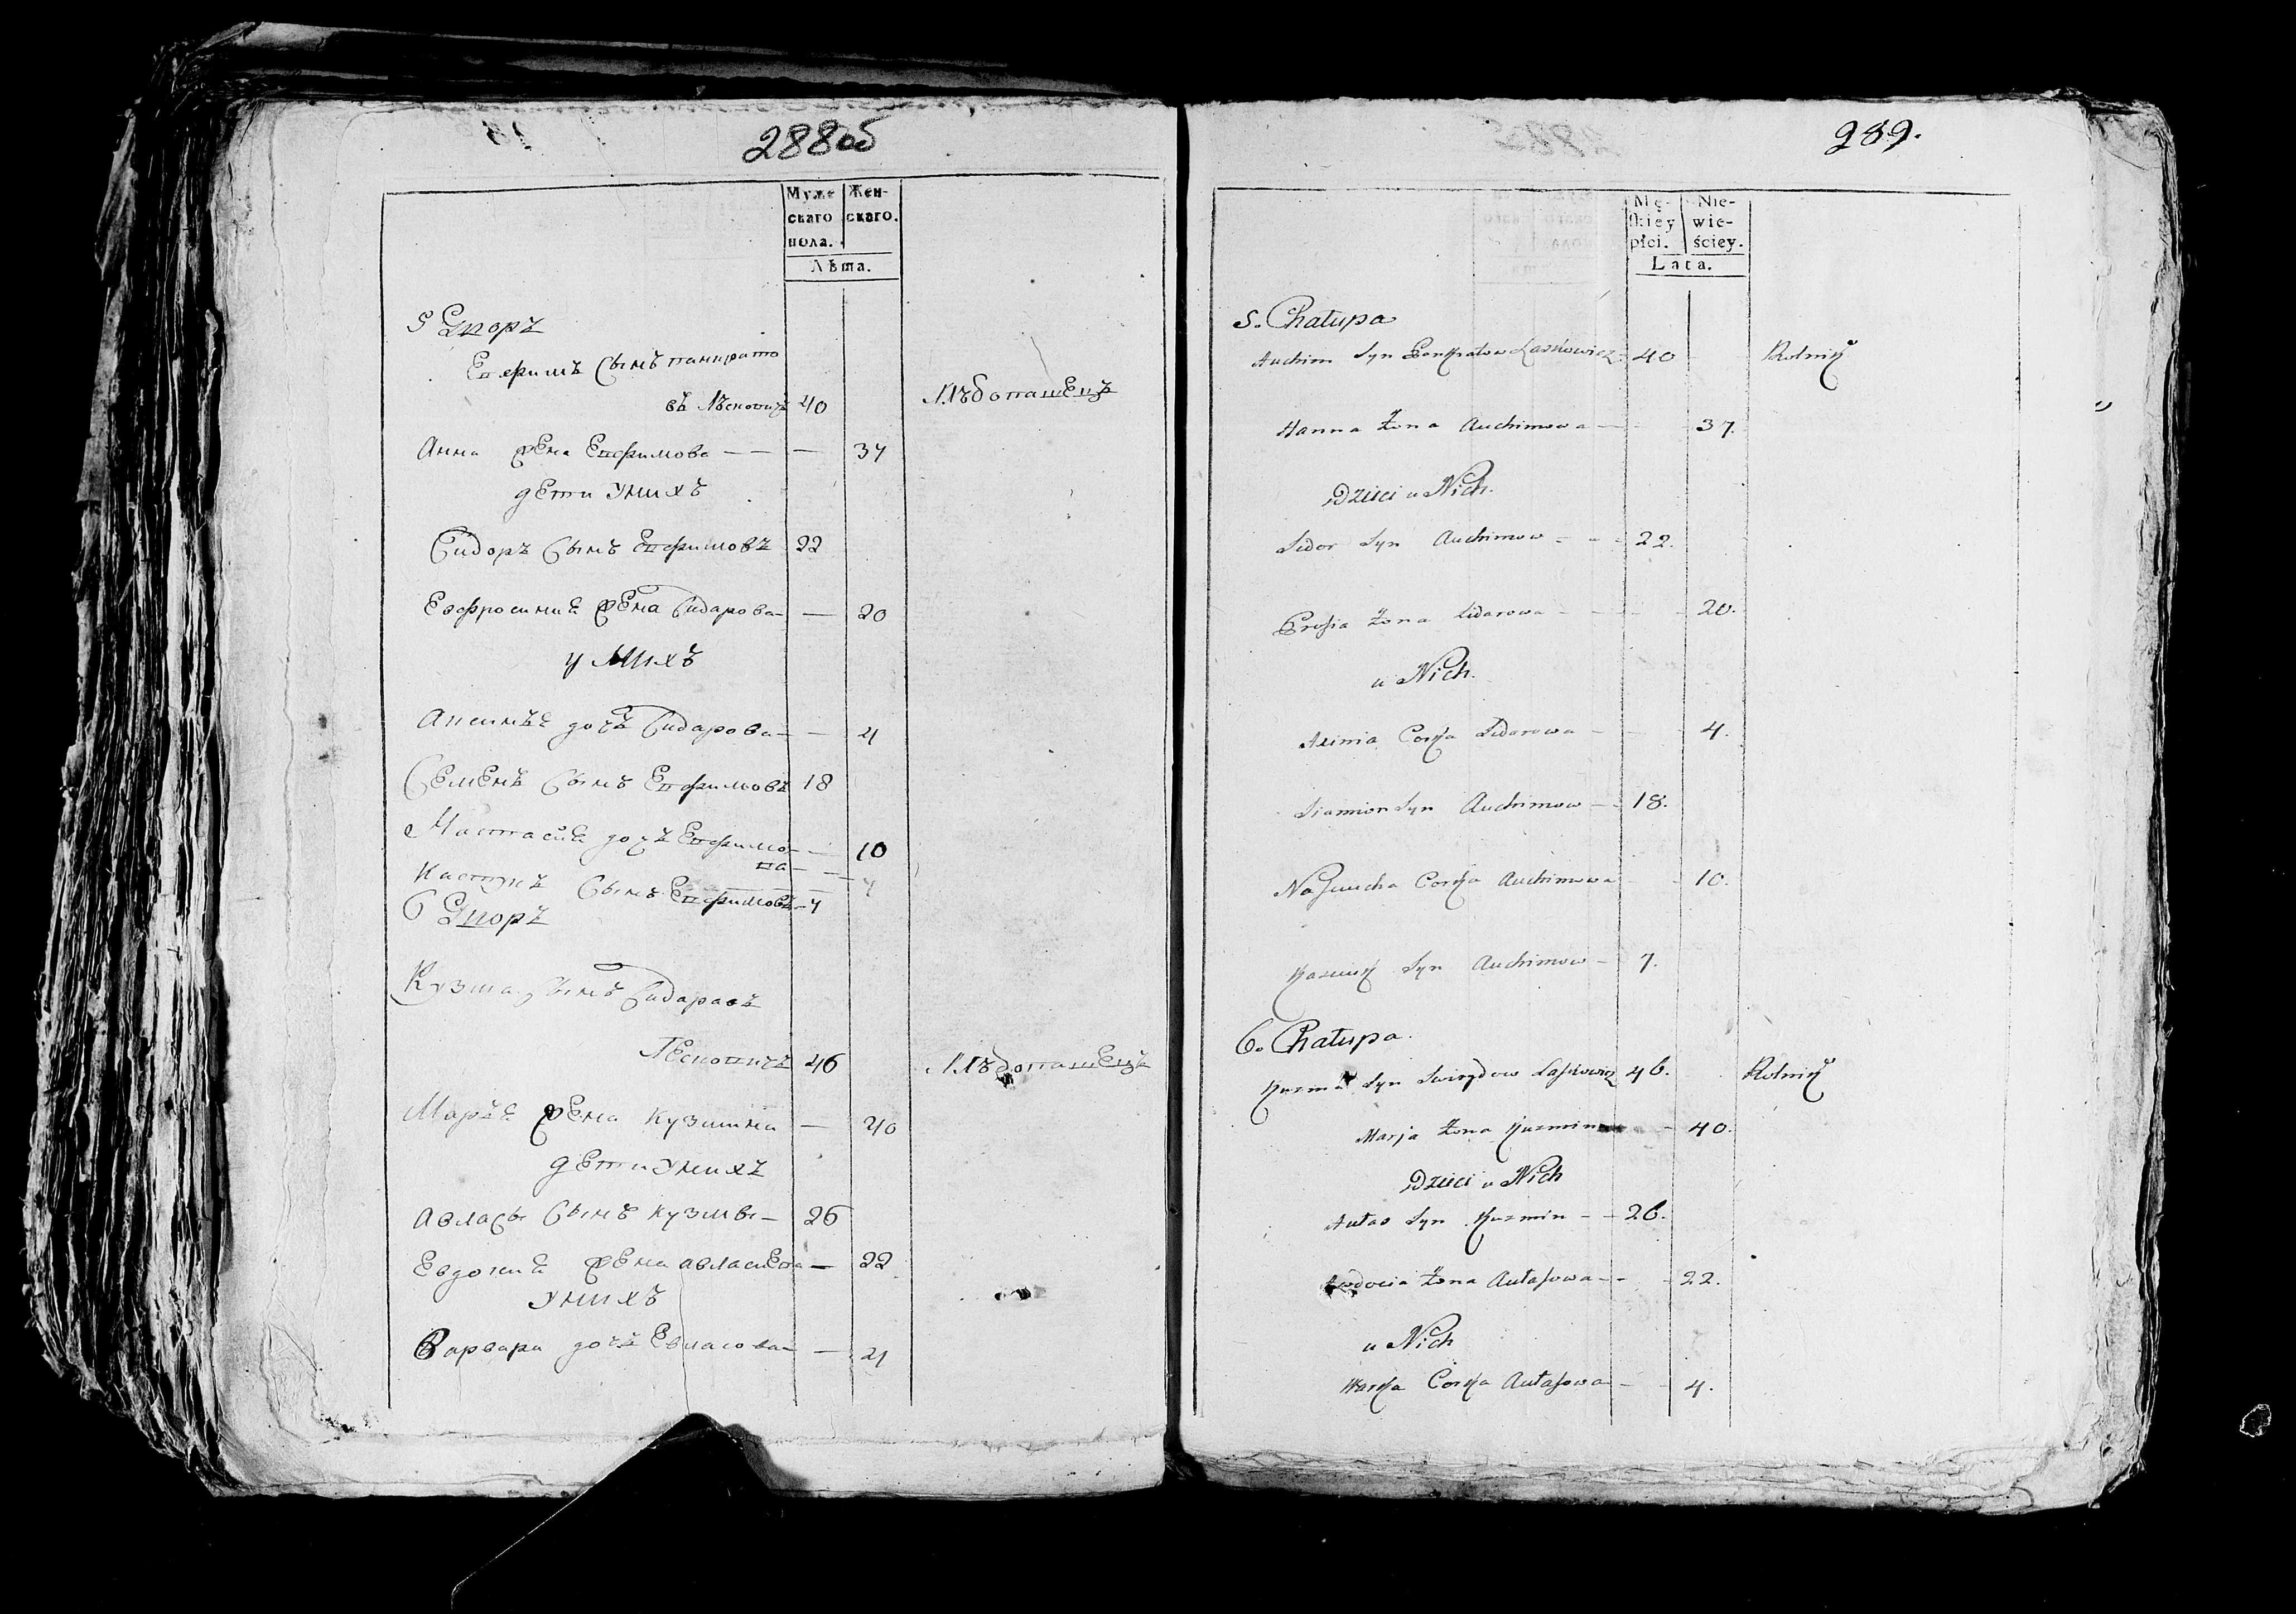 288 об
Муже
скаго
пола.
Жен-
скаго.
Лѣта.
5 Дворъ
Ефимъ Сынъ панкрато
въ Лѣсковичъ 40 Хлѣбопашецъ
Анна жена Ефимова — — — 37
дети унихъ
Сидоръ Сынъ Ефимовъ 22
Евфросиниѣ жена Сидарова — — 20
у нихъ
Аксинъѣ дочъ Сидарова — — 4
Семенъ Сынъ Ефимовъ 18
Настасиѣ дочъ Ефимо — — 10
ва —
Сынъ Ефимовъ — 7
6 Дворъ
Кузма Сынъ Сидаравъ
Лесковичъ 46 Хлѣбопашецъ
Маръѣ жена Кузмина — 40
дети унихъ
Авласъ Сынъ Кузмы — 26
Евдокиѣ жена авласева — 22
унихъ
Варвара дочъ Евласова — — 4
289.
Mę-
skiey
płci.
Nie-
wie-
ściey.
Lata.
5. Chałupa
Auchim Syn Pankratow Laskowicz 40 Rolnik
Hanna Żona Auchimowa — 37.
Dzieci u Nich.
Sidor Syn Auchimow - - - 22.
Prosia Żona Sidarowa - - - 20.
u Nich.
Axinia Corka Sidarowa - - 4.
Siamion Syn Auchimow — 18.
Corka Auchimowa - - 10.
Syn Auchimow — 7.
6. Chałupa.
Kuzma Syn Laskowicz 46. Rolnik
Marja Żona Kuzmina - 40.
Dzieci u Nich
Aułas Syn Kuzmin - - 26.
Awdocia Żona Aułasowa - - - 22.
u Nich
Warka Corka Aułasowa - - 4.